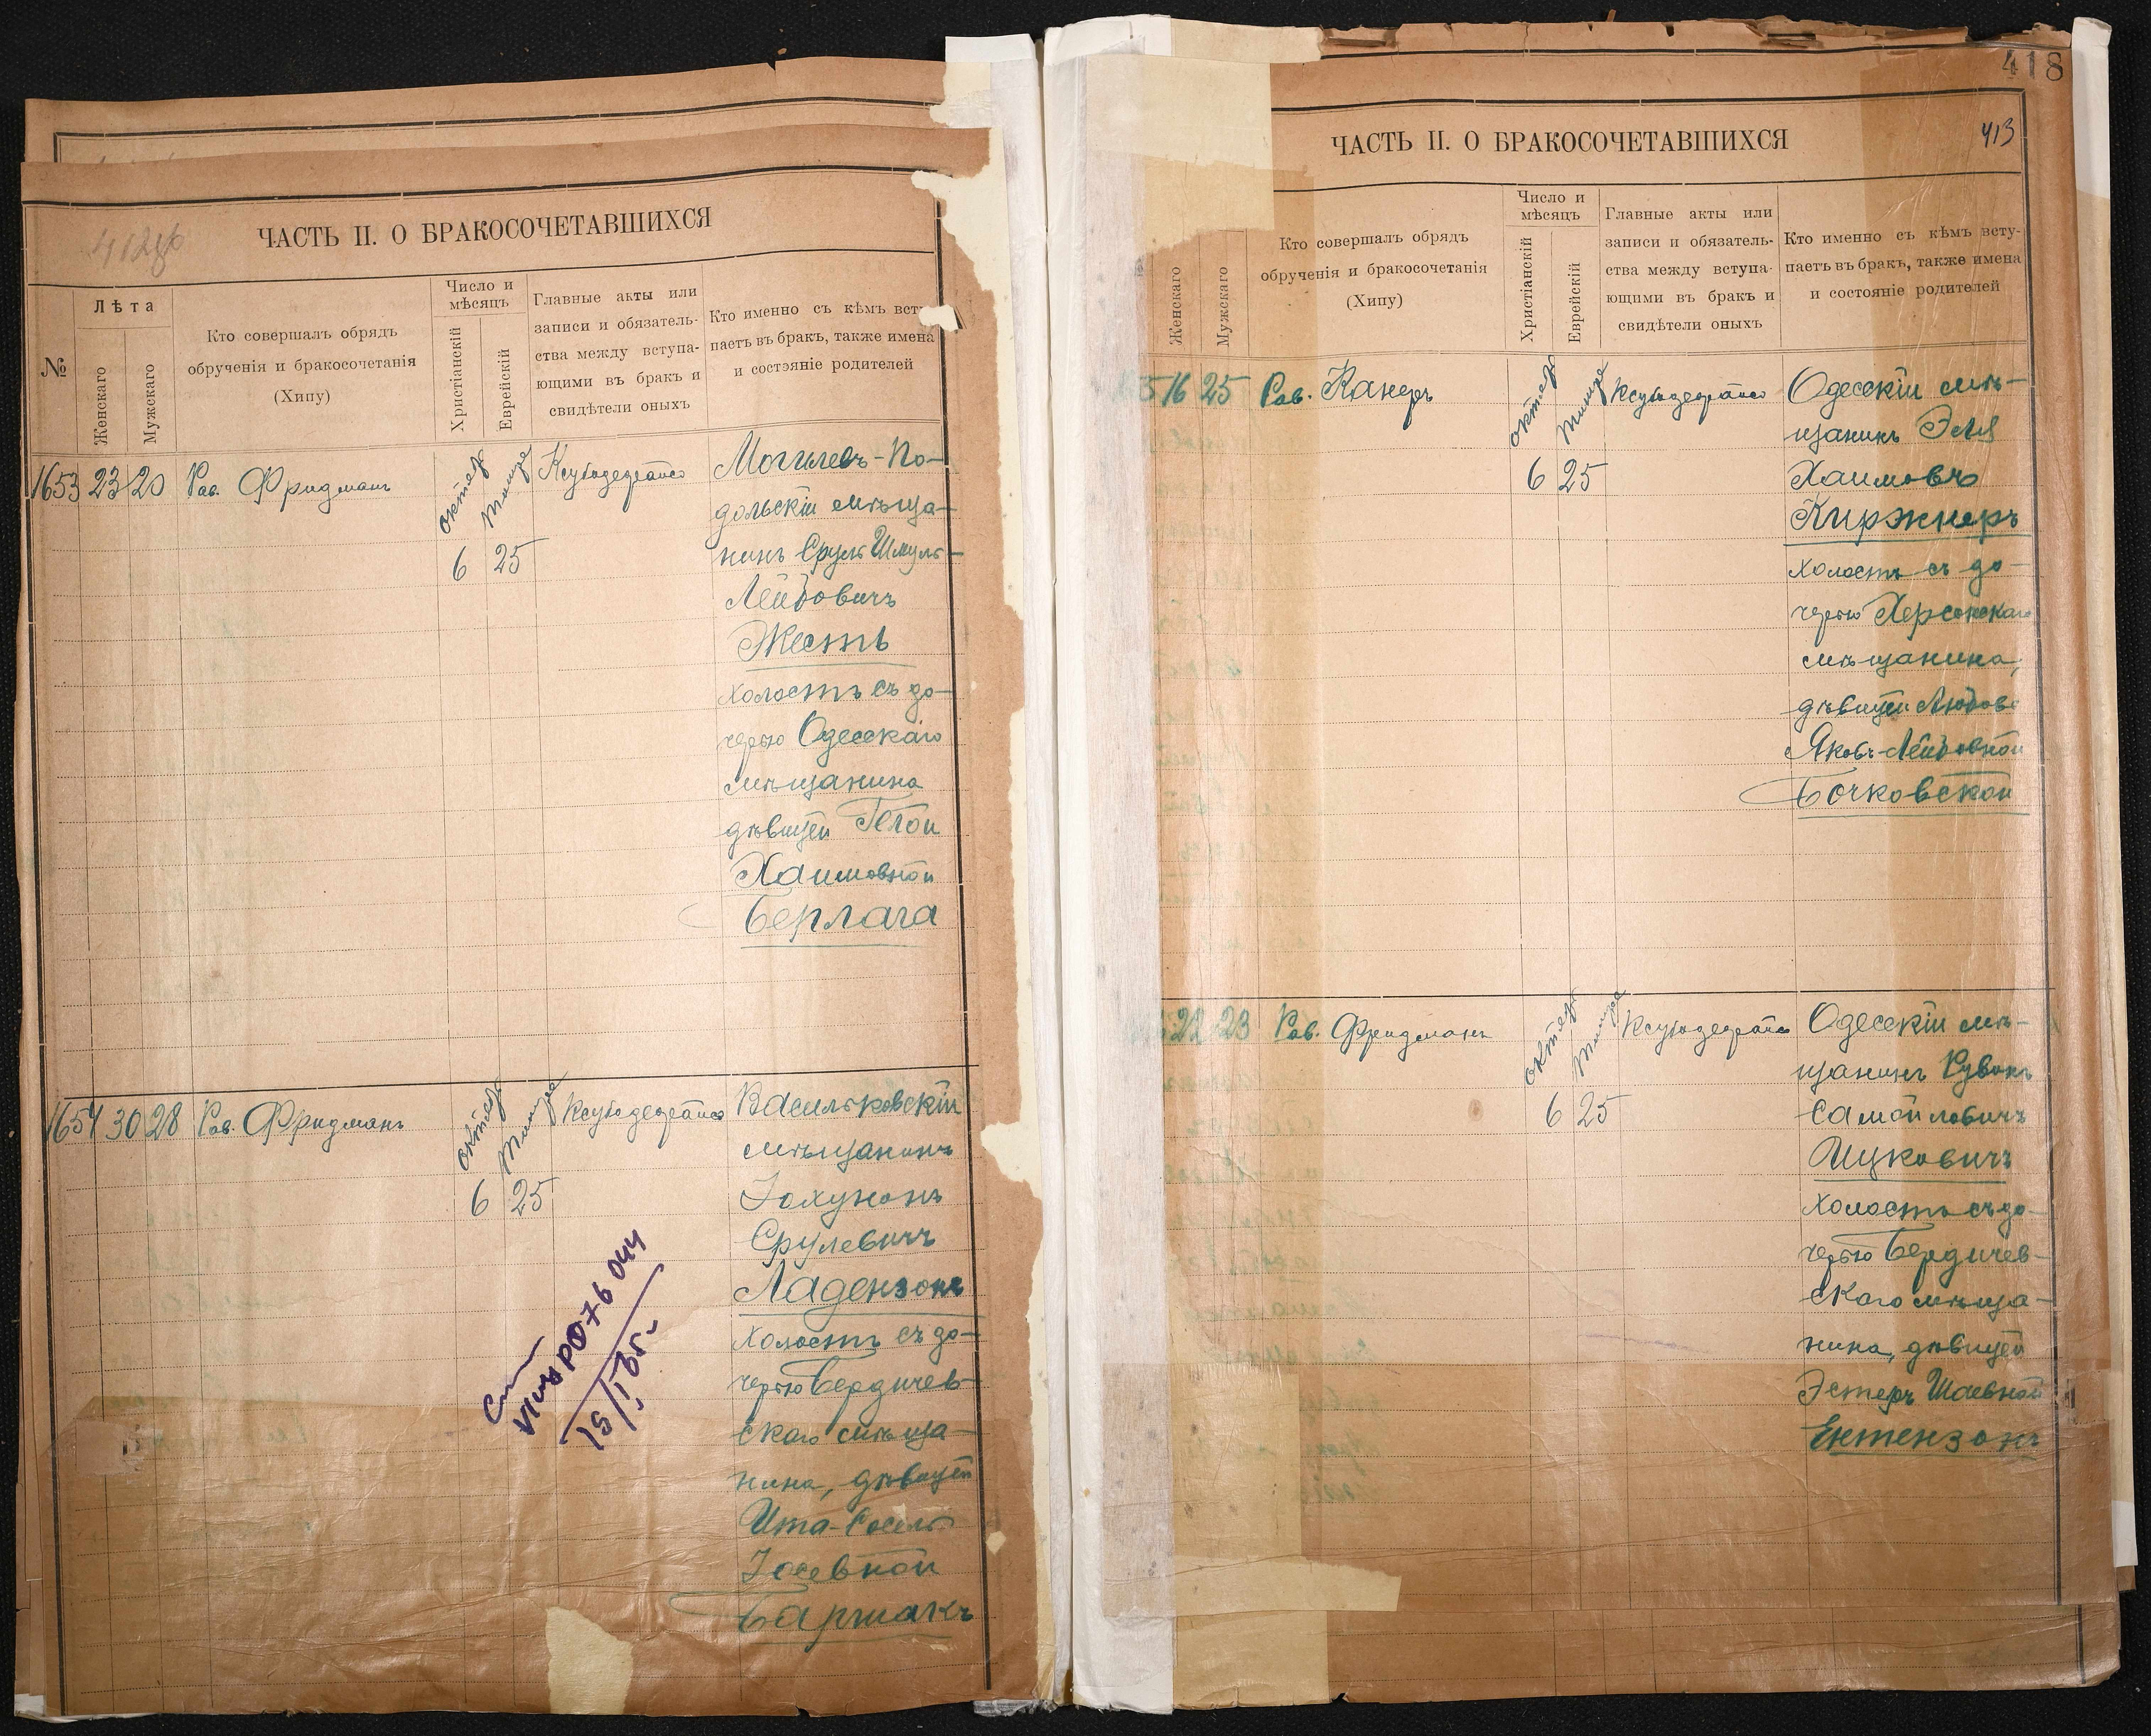 412об
ЧАСТЬ II. О БРАКОСОЧЕТАВШИХСЯ
№
Лѣта
Женскаго
Мужскаго
Кто совершалъ обрядъ
обрученія и бракосочетанія
(Хипу)
Число и
мѣсяцъ
Христіанскій
Еврейскій
Главные акты или
записи и обязатель-
ства между вступа-
ющими въ бракъ и
свидѣтели оныхъ
Кто именно съ кѣмъ всту
паетъ въ бракъ, также имена
и состояніе родителей
1653 23 20 Рав. Фридманъ
октябр Тишре
6 25
Могилевъ-По-
дольскій мѣща-
нинъ Сруль Шмуль-
Лейбовичъ
Жесть
холостъ съ до-
черью Одесскаго
мѣщанина
дѣвицей Гелой
Хаимовной
Берлага
1654 30 28 Рав. Фридманъ
октябр Тишре
6 25
Васильковскій
мѣщанинъ
Іохунонъ
Срулевичъ
Ладензонъ
холостъ съ до-
черью Бердичев-
скаго мѣща-
нина, дѣвицей
Ита-Сосель
Іосевной
Бармакъ
076 044
418
413
ЧАСТЬ II. О БРАКОСОЧЕТАВШИХСЯ
Женскаго
Мужскаго
Кто совершалъ обрядъ
обрученія и бракосочетанія
(Хипу)
Число и
мѣсяцъ
Христіанскій
Еврейскій
Главные акты или
записи и обязатель-
ства между вступа-
ющими въ бракъ и
свидѣтели оныхъ
Кто именно съ кѣмъ всту-
паетъ въ бракъ, также имена
и состояніе родителей
16 25 Рав. Канеръ
октябр Тишре
6 25
Одесскій мѣ-
щанинъ Эля
Хаимовъ
Киржнеръ
холостъ съ до-
черью Херсонскаго
мѣщанина,
дѣвицей Любовь
Яковъ-Лейбовной
Бочковской
22 23 Рав. Фридманъ
октябр Тишре
6 25
Одесскій мѣ-
щанинъ Рувинъ
Самойловичъ
Ицковичъ
холостъ съ до-
черью Бердичев-
скаго мѣща-
нина, дѣвицей
Эстеръ Шаевной
Ентензонъ